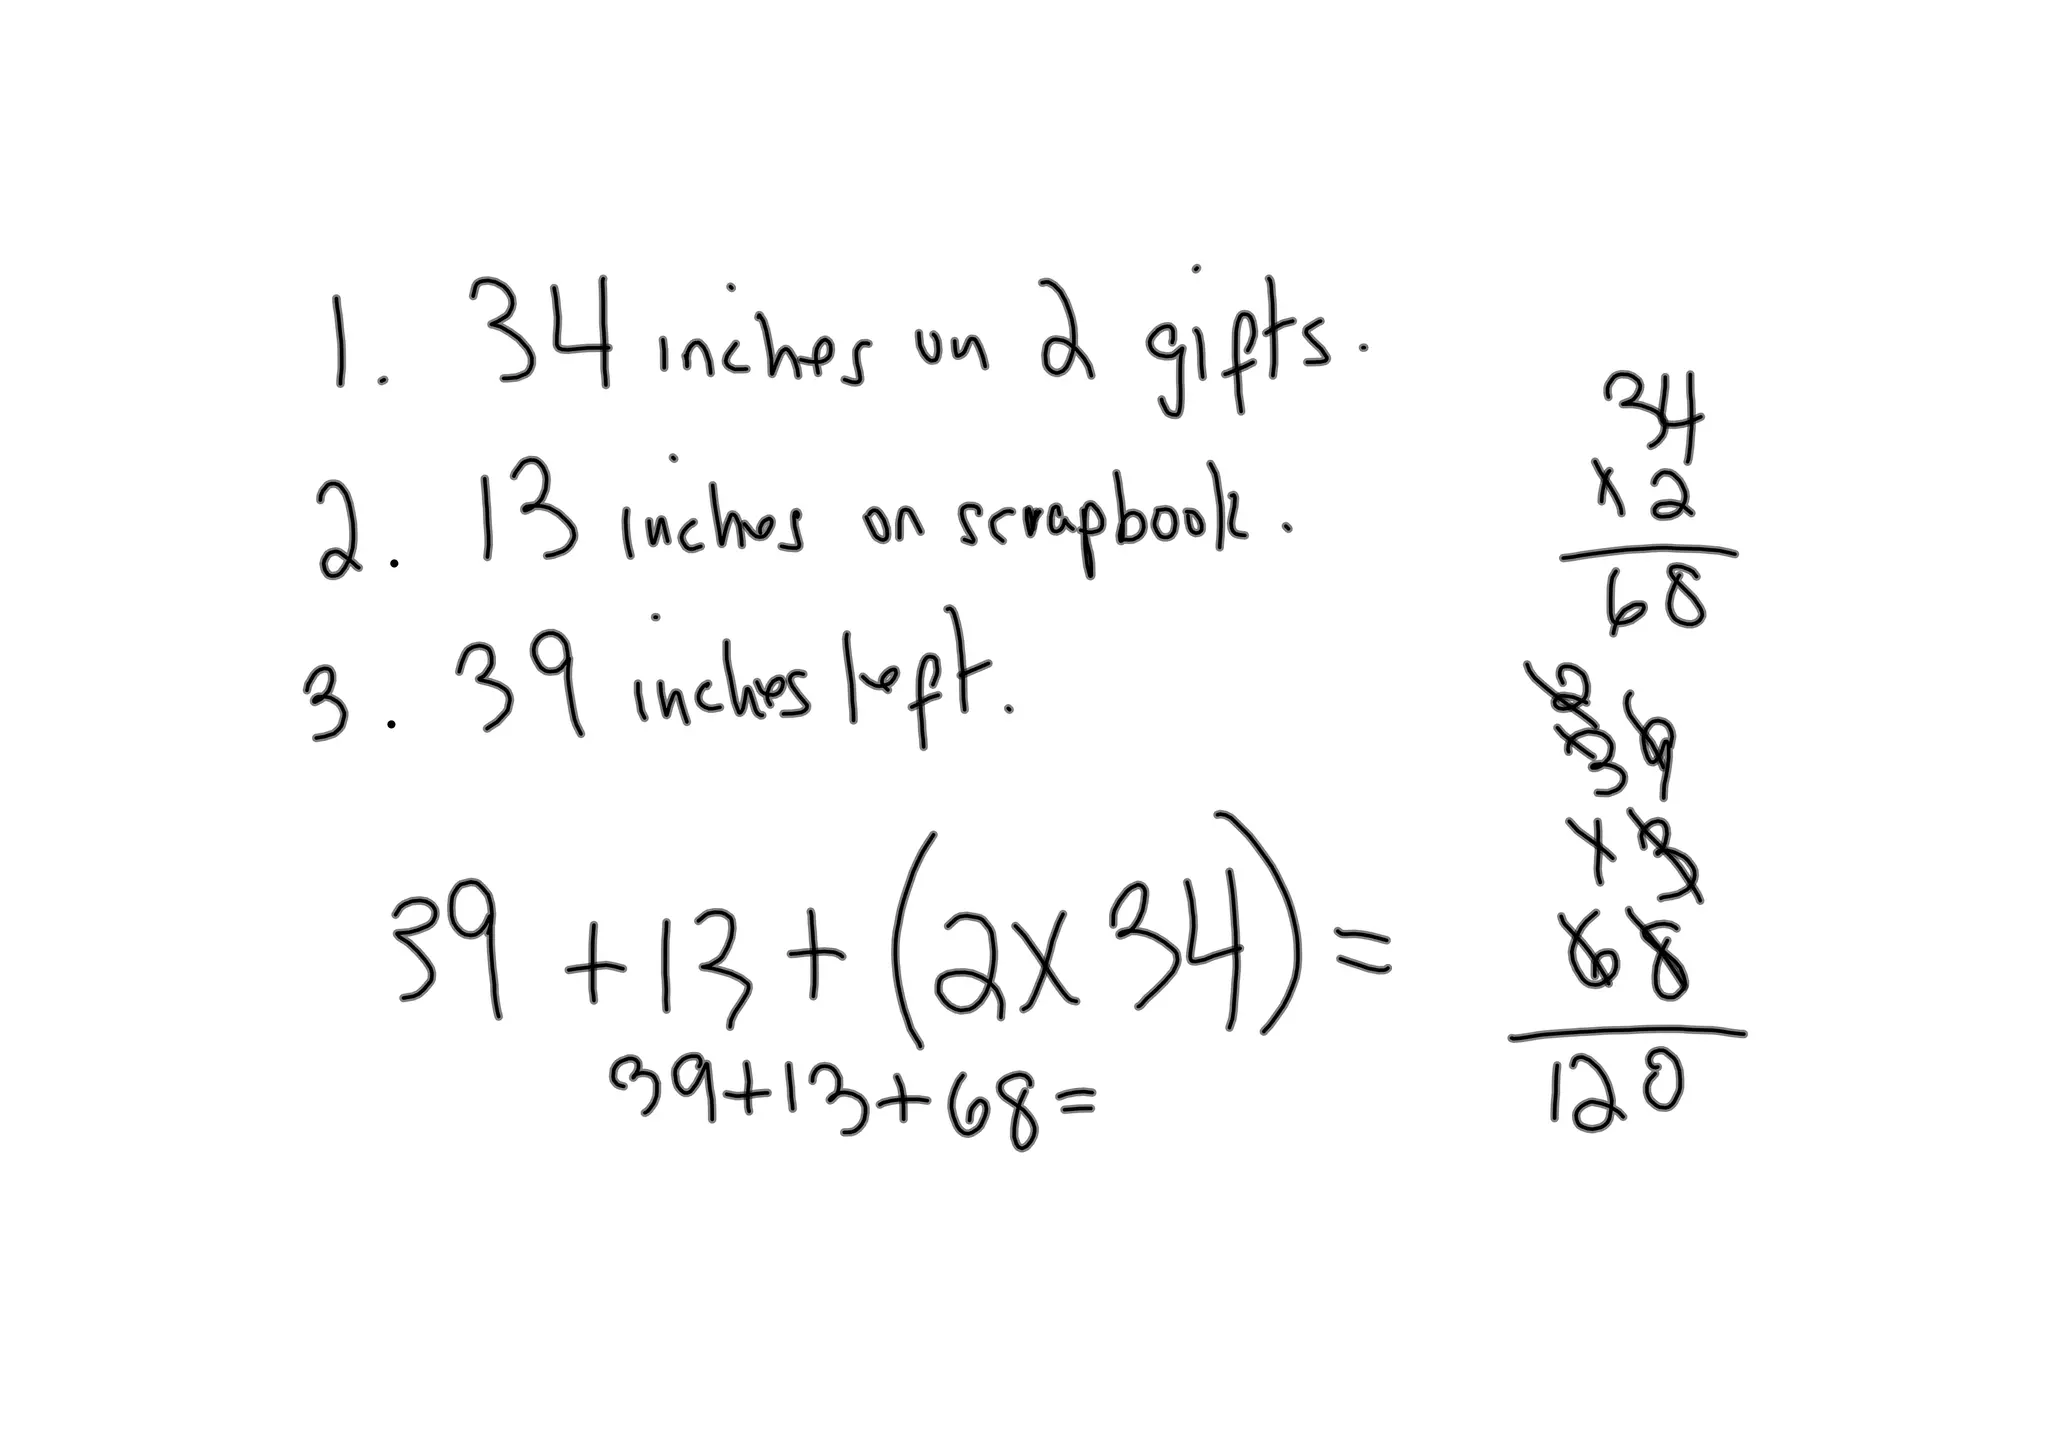 1. 34 inches on 2 gifts.
2. 13 inches on scrapbook.
3. 39 inches left.
39 + 13 + (2x34) =
39+13+68=
34
x 2
68
39
x 13
68
120